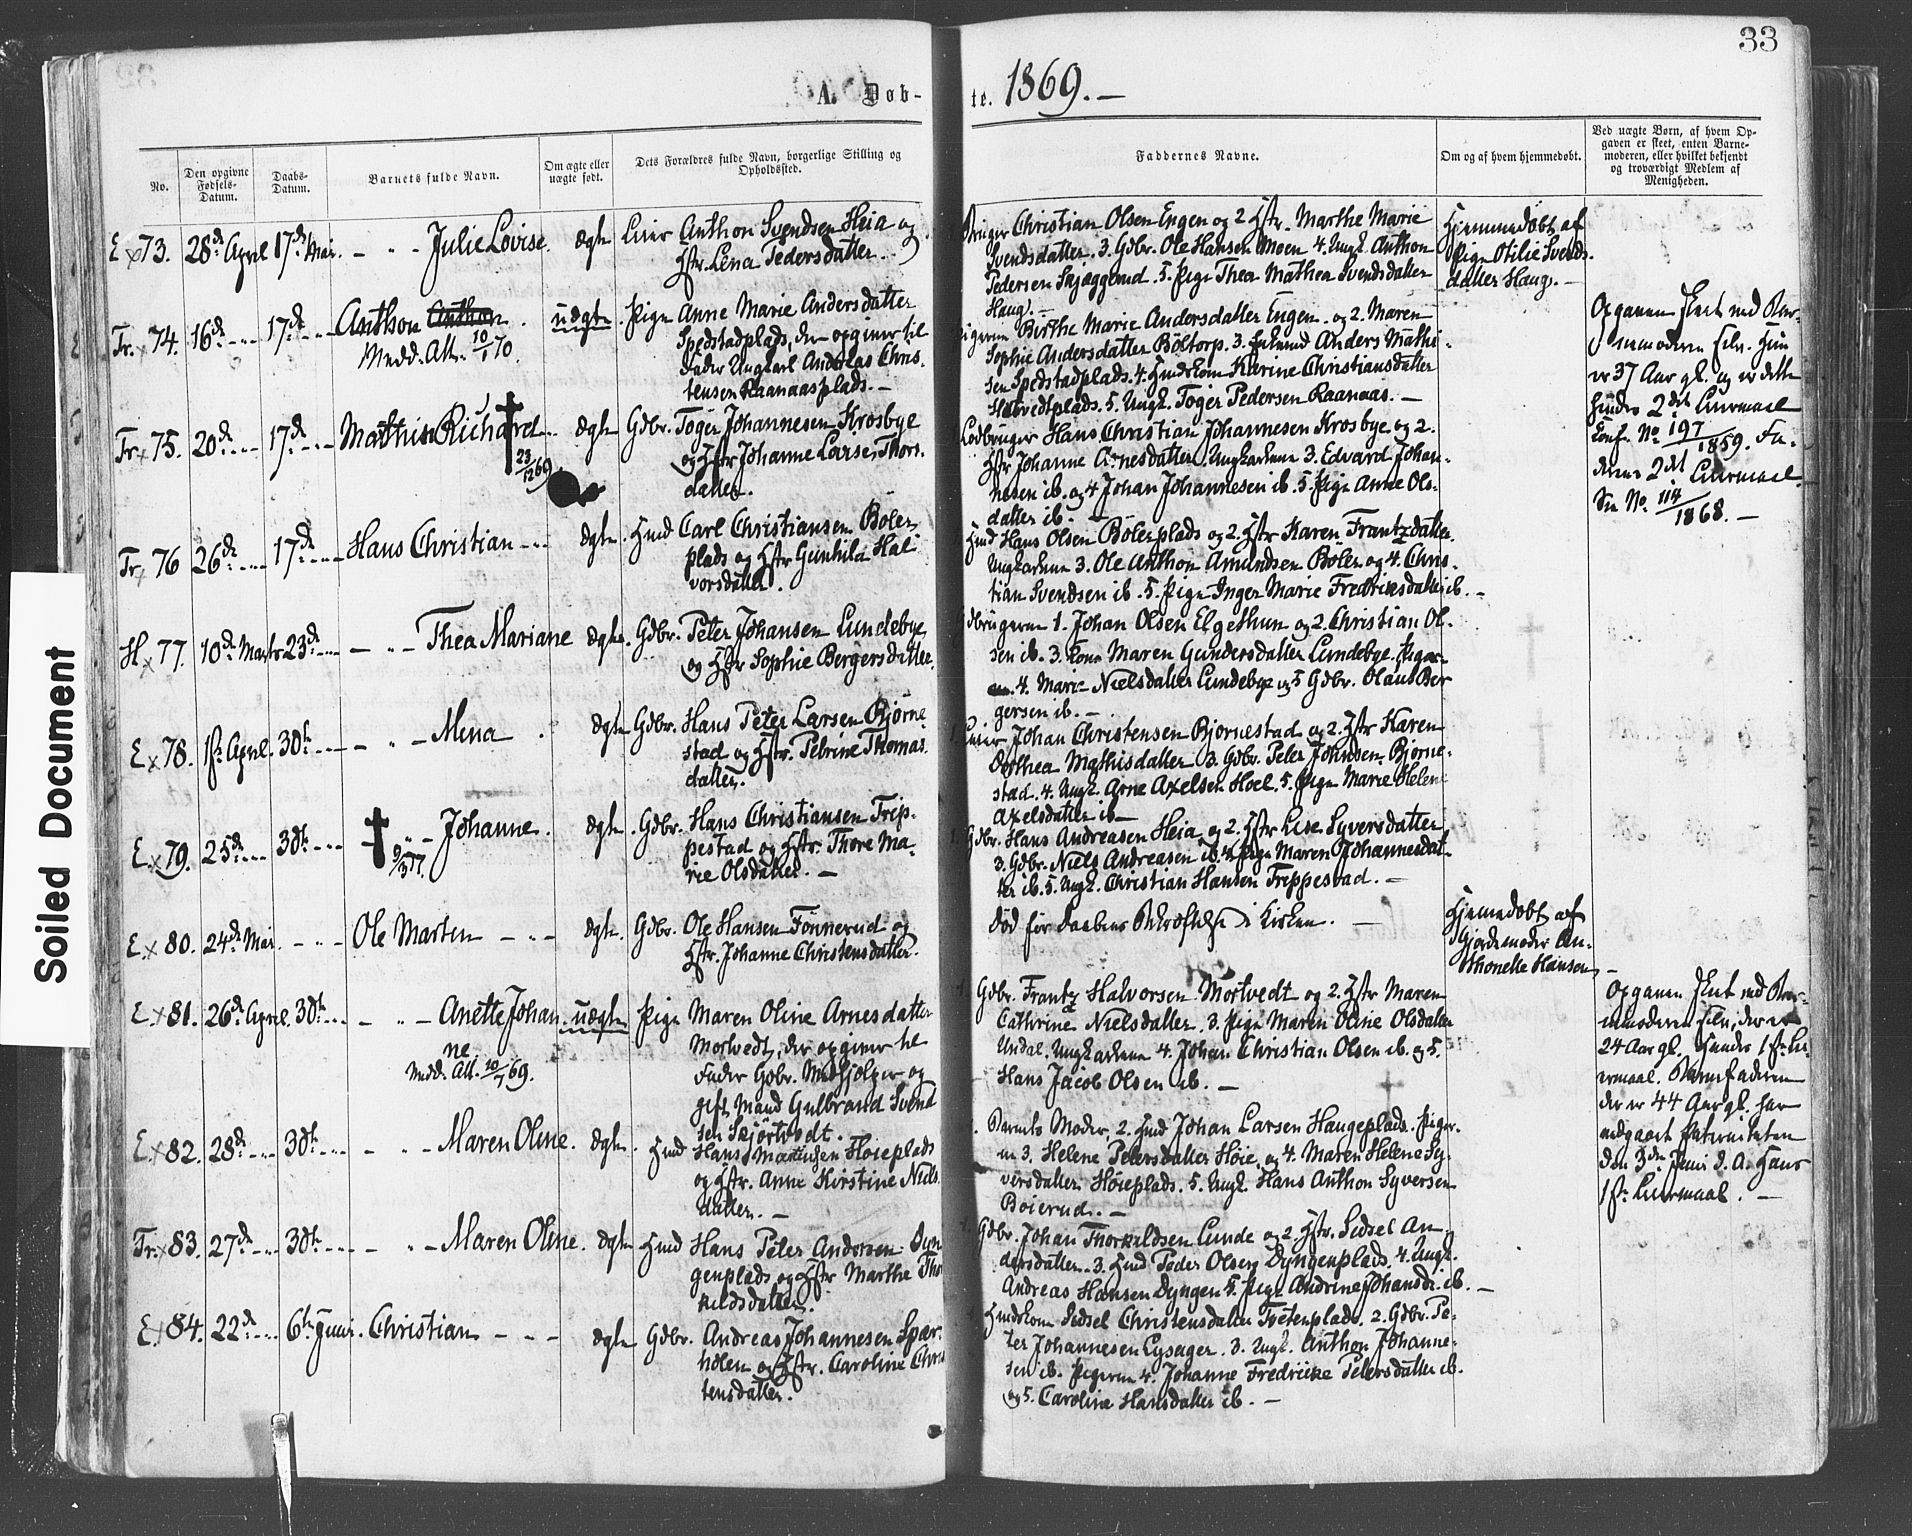 33
A. Døb-
te. 1869. -
No.
Den opgivne Fødsels-Datum.
Daabs-Datum.
Barnets fulde Navn.
Om ægte eller uægte født.
Dets Forældres fulde Navn, borgerlige Stilling og Opholdssted.
Faddernes Navne.
Om og af hvem hjemmedøbt.
Ved uægte Børn, af hvem Op-
gaven er skeet, enten Barne-
moderen, eller hvilket bekjendt
og troværdigt Medlem af
Menigheden.
E x 73. 28de April 17de Mai. - " - Julie Lovise. ægte Leier Anthon Svendsen Heia og
Hstr. Lena Pedersdatter.
Christian Olsen Engen og 2 Hstr. Marthe Marie
Svendsdatter. 3. Gdbr. Ole Hansen Moen 4. Ungk. Anthon
Pedersen Skjæggerud. 5. Pige Thea Mathea Svendsdatter
Haug. -
Hjemmedøbt af
Pige Otilie Svends-
datter Haug. -
Tr. x 74. 16de 17de Anthon Anthon. uægte Pige Anne Marie Andersdatter
Medd. Att. 10/1 70
Spedstadplads, der opgiver til
Fader Ungkarl Andreas Chris-
tensen Raanaasplads. -
Birthe Marie Andersdatter Engen og 2. Maren
Sophie Andersdatter Böltorp. 3. Anders Mathi-
sen Spedstadplads. 4. Hmdskone Karine Christiansdatter
Habvedtplads. 5. Ungk. Toger Pedersen Raanaas. -
Opgaven skeet ved Bar-
nemoderen selv. Hun
er 37 Aar gl. og er dette
hendes 2det Leiermaal
Conf. No. 197/1859. Fa-
derens 2det Leiermaal.
Se No. 114/1868. -
Tr. x 75. 20de 17de Mathis Richard ægte Gdbr. Toger Johannesen Krosbye
23/12 69
og Hstr Johanne Larsen Thors-
datter.
Hans Christian Johannesen Krosbye og 2.
Hstr Johanne Arnesdatter. Ungkarlene 3. Edvard Johan-
nesen ib. og 4 Johan Johannesen ib. 5. Pige Anne Ols-
datter ib. -
Tr. x 76 26de 17de Hans Christian ægte. Hmd Carl Christiansen Böler-
plads og Hstr Gunhild Hal-
vorsdatter.
Hmd Hans Olsen Bölerplads og 2. Hstr Karen Frantzdatter
Ungkarlene 3. Ole Anthon Amundsen Böler og 4. Chris-
tian Svendsen ib. 5. Pige Inger Marie Fredriksdatter ib. -
H. x 77. 10de Marts 23de - " - Thea Mariane ægte. Gdbr. Peter Johansen Lundebye
og Hstr Sophie Bergersdatter.
Gdbrugerne 1. Johan Olsen Elgethun og 2. Christian Ol-
sen ib. 3. Kone Maren Gundersdatter Lundebye. Piger-
ne 4. Marie Nielsdatter Lundebye og 5 Gdbr. Olaus Ber-
gersen ib. -
E x 78. 1ste April. 30te - " - Mina. ægte Gdbr. Hans Peter Larsen Bjørne-
stad og Hstr. Petrine Thomas-
datter.
Johan Christensen Bjørnestad og 2. Hstr Karen
Dorthea Mathisdatter 3. Gdbr. Peter Johnsen Bjørne-
stad. 4. Ungk. Arne Axelsen Hoel. 5. Pige Marie Helene
Axelsdatter ib -
E x 79. 25de 30te - " - Johanne. ægte. Gdbr. Hans Christiansen Trip-
9/3 77.
pestad og Hstr. Thore Ma-
rie Olsdatter. -
1. Gdbr. Hans Andreasen Heia og 2. Hstr Lise Syversdatter
3. Gdbr. Niels Andreasen ib. 4. Pige Maren Johannesdat-
ter ib. 5. Ungk. Christian Hansen Treppestad. -
E. x 80. 24de Mai. - " - Ole Marten - " - ægte. Gdbr. Ole Hansen Fönnerud og
Hstr. Johanne Christensdatter.
Død før Daabens Bekræftelse i Kirken. -
Hjemmedøbt af
Gjordemoder An-
thonette Hansen -
E. x 81. 26de April. 30te - " - Anette Johan- uægte Pige Maren Oline Arnesdatter
ne.
Medd. Att. 10/7 69.
Mortvedt, der opgiver til
Fader Gdbr. Medhjælper og
gift Mand Gulbrand Svend-
sen Skjørtvedt.
1. Gdbr. Frantz Halvorsen Mortvedt og 2. Hstr Maren
Cathrine Nielsdatter. 3. Pige Maren Oline Olsdatter
Undal. Ungkarlene 4. Johan Christian Olsen ib. og 5.
Hans Jacob Olsen ib. -
Opgaven skeet ved Bar-
nemoderen selv, der er
24 Aar gl. Hendes 1ste Lei-
ermaal. Barnefaderen
der er 44 Aar gl. har
vedgaaet Paterniteten
den 3die Juni d. A. Hans
1ste Leiermaal. -
E. x 82. 28de 30te - " - Maren Oline. ægte. Hmd Hans Martinsen Høieplads
og Hstr. Anne Kirstine Niels-
datter. -
1. Barnets Moder, 2. Hmd Johan Larsen Haugeplads. Piger-
ne 3. Helene Petersdatter Høie og 4. Maren Helene Sy-
versdatter Høieplads. 5. Ungk. Hans Anthon Syversen
Böierud. -
Tr. x 83. 27de 30te - " - Maren Oline. ægte Hmd Hans Peter Andersen Dyn-
genplads og Hstr Marthe Thor-
kildsdatter.
1. Gdbr. Johan Thorkildsen Lunde og 2. Hstr. Sidsel An-
dersdatter. 3. Hmd Peder Olsen Dyngenplads. 4. Ungk.
Andreas Hansen Dyngen 5. Pige Andrine Johansd. ib. -
E x 84. 22de 6te Juni. Christian - " - ægte Gdbr. Andreas Johannesen Spær-
holen og Hstr. Caroline Chris-
tensdatter.
Hmdskone Sidsel Christensdatter Tvetenplads. 2. Gdbr. Pe-
ter Johannesen Lysager. 3. Ungk. Anthon Johanne-
sen ib. Pigerne 4. Johanne Fredrikke Petersdatter ib.
og 5. Caroline Hansdatter ib. -
Soiled Document